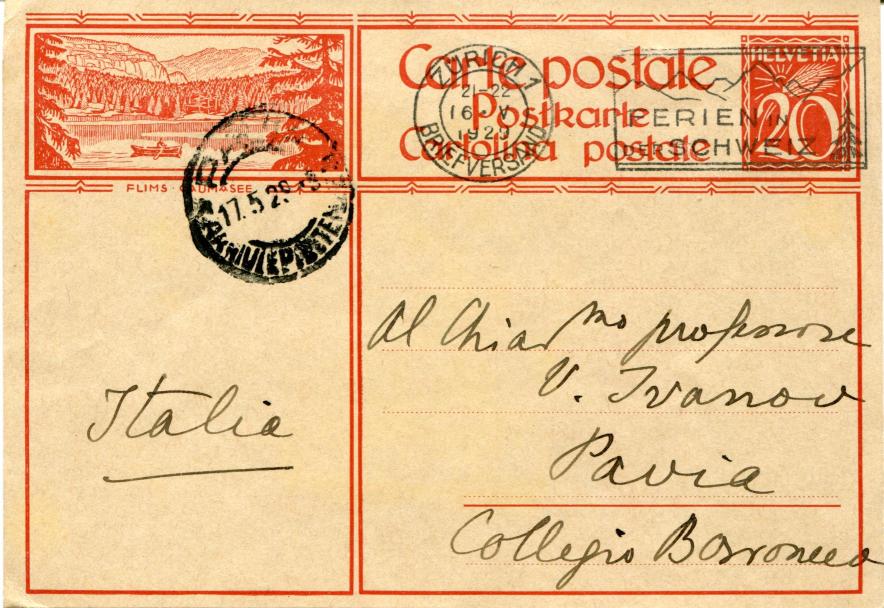 Carte postale
Postkarte
Cartolina postale
HELVETIA
20
ZÜRICH 1
21-22
16. V.
1929
BRIEFVERSAND
FERIEN IN
DER SCHWEIZ
FLIMS · CAUMASEE
17.5.29
Italia
Al Chiar mo professore
V. Ivanov
Pavia
Collegio Borromeo